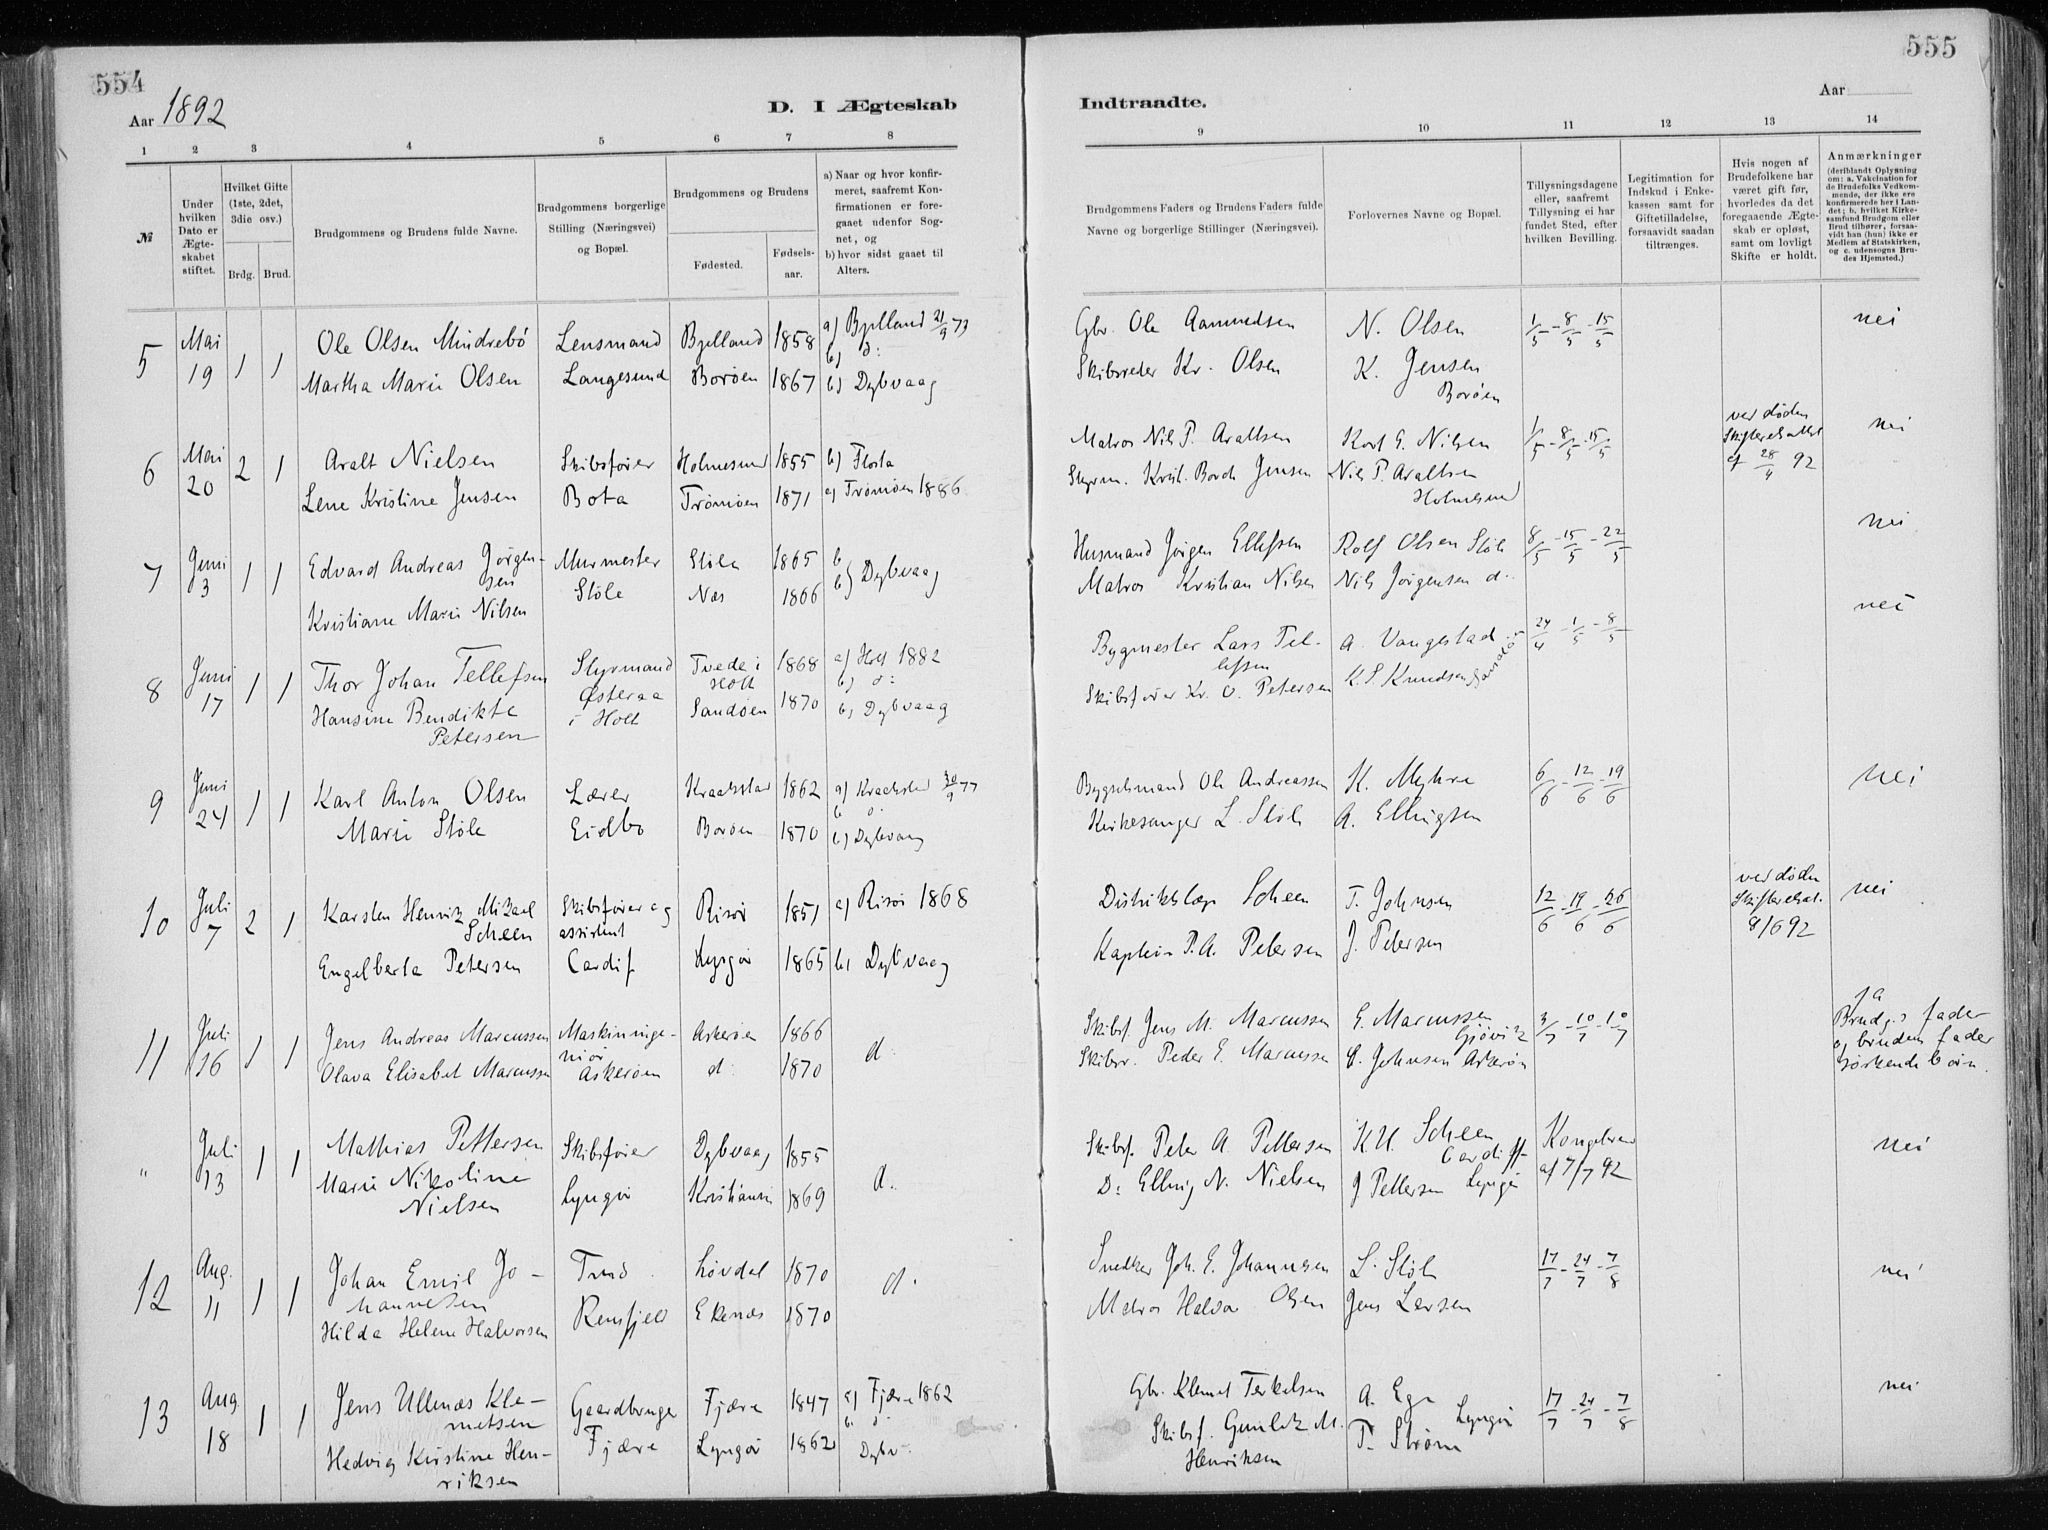 554
Aar 1892
D. I Ægteskab
1 2 3 4 5 6 7 8
№
Under hvilken Dato er Ægteskabet stiftet.
Hvilket Gifte (1ste, 2det, 3die osv.)
Brdg. Brud.
Brudgommens og Brudens fulde Navne.
Brudgommens borgerlige Stilling (Næringsvei) og Bopæl.
Brudgommens og Brudens
Fødested. Fødselsaar.
a) Naar og hvor konfirmeret, saafremt Konfirmationen er foregaaet udenfor Sognet, og
b) hvor sidst gaaet til Alters.
5 Mai 19 1 1
Ole Olsen Mindrebö Lensmand Bjelland 1858 a) Bjelland 21/9 73
b) d:
Martha Marie Olsen Langesund Borøen 1867 b) Dybvaag
6 Mai 20 2 1
Aralt Nielsen Skibsfører Holmesund 1855 b) Flosta
Lene Kristine Jensen Bota Tromöen 1871 a) Tromöen 1886
7 Juni 3 1 1
Edvard Andreas Jørgensen Murmester Støle 1865 b
Kristiane Marie Nilsen Støle Næs 1866 b) Dybvaag
8 Juni 17 1 1
Thor Johan Tellefsen Styrmand Tvede i Holt 1868 a) Holt 1882
b) d:
Hansine Bendikte Petersen Østeraa i Holt Sandøen 1870 b) Dybvaag
9 Juni 24 1 1
Karl Anton Olsen Lærer 1862 30/9 77
b d:
Marie Støle Eidbo Borøen 1870 b) Dybvaag
10 Juli 7 2 1
Karsten Henrik Mikael Scheen Skibsfører og assistent Risør 1851 a) Risör 1868
Engelberta Petersen Cardif Lyngör 1865 b) Dybvaag
11 Juli 16 1 1
Jens Andreas Marcussen Maskiningeniör Askerøen 1866
Olava Elisabet Marcussen Askerøen d: 1870 d:
" Juli 13 1 1
Mathias Pettersen Skibsfører Dybvaag 1855
Marie Nikoline Nielsen Lyngör 1869 d.
12 Aug. 11 1 1
Johan Emil Johannesen Lövdal 1870 d.
Hilda Helene Halvorsen Ekenæs 1870
13 Aug 18 1 1
Jens Ullenæs Klemetsen Gaardbruger Fjære 1847 a) Fjære 1862
b. d:
Hedvig Kristine Henriksen Fjære Lyngör 1862 Dybv.
555
Indtraadte.
Aar
9 10 11 12 13 14
Brudgommens Faders og Brudens Faders fulde Navne og borgerlige Stillinger (Næringsvei).
Forlovernes Navne og Bopæl.
Tillysningsdagene eller, saafremt Tillysning ei har fundet Sted, efter hvilken Bevilling.
Legitimation for Indskud i Enkekassen samt for Giftetilladelse, forsaavidt saadan tiltrænges.
Hvis nogen af Brudefolkene har været gift før, hvorledes da det foregaaende Ægteskab er opløst, samt om lovligt Skifte er holdt.
Anmærkninger
(deriblandt Oplysning om: a. Vakcination for de Brudefolks Vedkommende, der ikke ere konfirmerede her i Landet; b. hvilket Kirkesamfund Brudgom eller Brud tilhører, forsaavidt han (hun) ikke er Medlem af Statskirken, og c. udensogns Brudes Hjemsted.)
Gbr. Ole Aamundsen N. Olsen 1/5 - 8/5 - 15/5 nei
Skibsreder Kr. Olsen K. Jensen
Borøen
Matros Nils P. Araltsen Karl G. Nilsen 1/5 - 8/5 - 15/5 ved døden nei
Styrm. Krist. Jensen Nils P. Araltsen Holmesund 28/4 92
Husmand Jörgen Ellefsen Rolf Olsen Støle 8/5 - 15/5 - 22/5 nei
Matros Kristian Nilsen Nils Jörgensen d:
Bygmester Lars Tellefsen A. Vangestad 24/4 - 1/5 - 8/5 nei
Skibsfører Kr. O. Petersen K. S. Knudsen
Ole Andreassen K. Myhre 6/6 - 12/6 - 19/6 nei
Kirkesanger L. Støle A. Ellingsen
Distriktslæge Scheen T. Johnsen 12/6 - 19/6 - 26/6 ved døden nei
Kaptein P. A. Petersen J. Petersen 8/6 92
Skibsf. Jens M. Marcussen E. Marcussen Gjövik 3/7 - 10/7 - 10/7 ja
Brudg.s fader
Skibsr. Peder E. Marcussen C. Johnsen Askerön og brudens fader
søskendebörn.
Skibsf. Peter A. Pettersen K H. Scheen Cardiff Kongebrev nei
D: Elling N. Nielsen J Pettersen Lyngör af 7/7 92
Snedker Joh. E. Johannesen L. Støle 17/7 - 24/7 - 7/8 nei
Matros Halvor Olsen Jens Larsen
Gbr. Klemet Terkelsen A. Ege Lyngör 17/7 - 24/7 - 7/8 nei
Skibsf. M. Henriksen T. Strøm